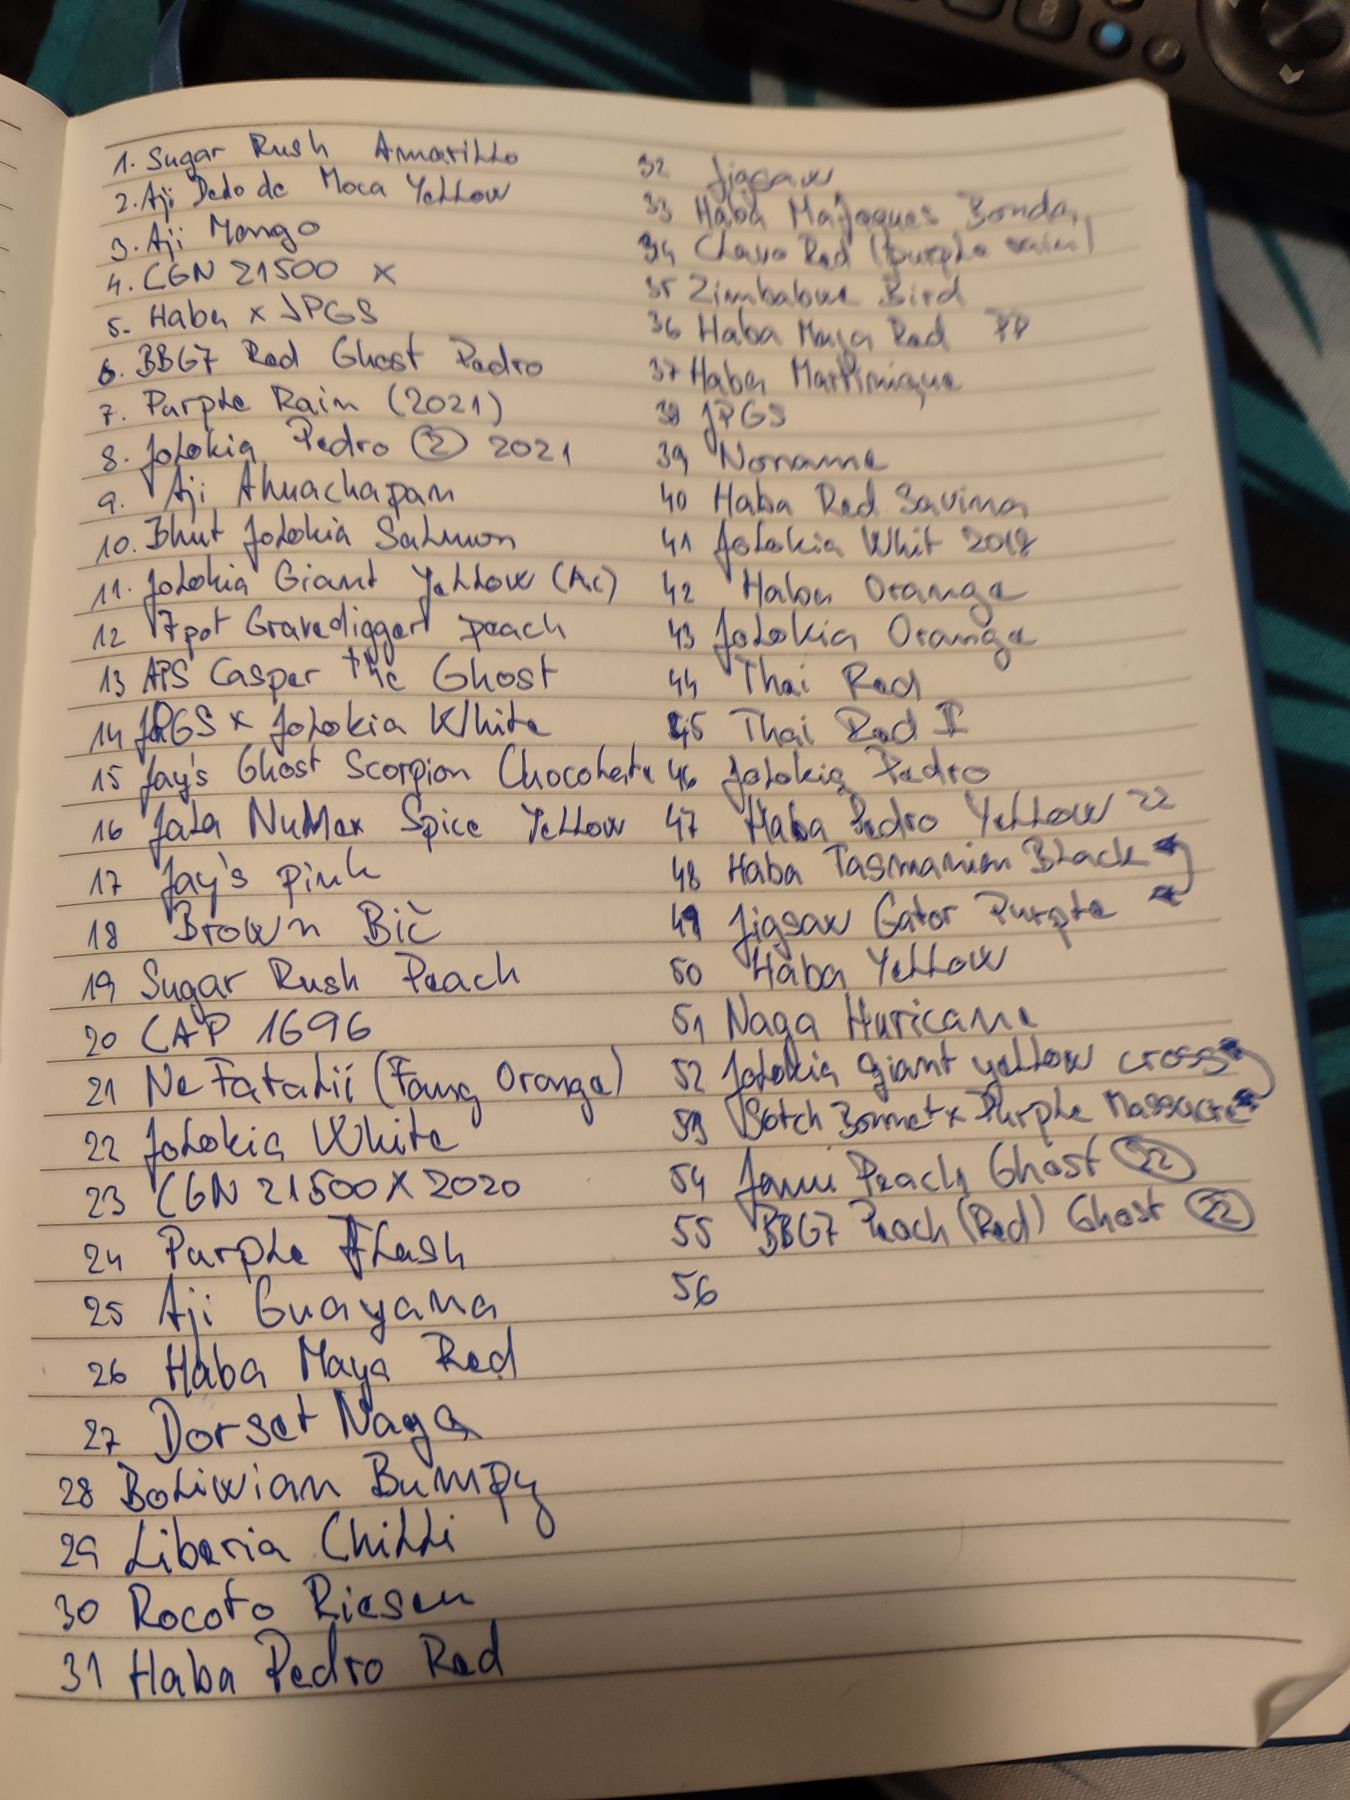 1. Sugar Rush Amarillo
2. Aji Dedo de Moca Yellow
3. Aji Mango
4. CGN 21500 x
5. Haba x JPGS
6. BBG7 Red Ghost Pedro
7. Purple Rain (2021)
8. Jolokia Pedro 2 2021
9. Aji Ahuachapan
10. Bhut Jolokia Salmon
11. Jolokia Giant Yellow (Ac)
12 7pot Gravedigger peach
13 APS Casper the Ghost
14 JPGS x Jolokia White
15 Jay's Ghost Scorpion Chocolate
16 Jala NuMex Spice Yellow
17 Jay's pink
18 Brown Bič
19 Sugar Rush Peach
20 CAP 1696
21 Ne Fatalii (Fang Orange)
22 Jolokia White
23 CGN 21500 X 2020
24 Purple Flash
25 Aji Guayana
26 Haba Maya Red
27 Dorset Naga
28 Boliwian Bumpy
29 Liberia Chilli
30 Rocoto Riesen
31 Haba Pedro Red
32 Jigsaw
33 Haba Majoques
34 Chavo Red (purple rain)
35 Zimbabwe Bird
36 Haba Maya Red PP
37 Haba Martinique
38 JPGS
39 Noname
40 Haba Red Savina
41 Jolokia Whit 2018
42 Haba Orange
43 Jolokia Orange
44 Thai Red
45 Thai Red II
46 Jolokia Pedro
47 Haba Pedro Yellow 22
48 Haba Tasmanian Black
49 Jigsaw Gator Purple
50 Haba Yellow
51 Naga Huricane
52 Jolokia giant yellow cross
53 Sotch Bonnet x Purple Massacre
54 Jami Peach Ghost 22
55 BBG7 Peach (Red) Ghost 22
56